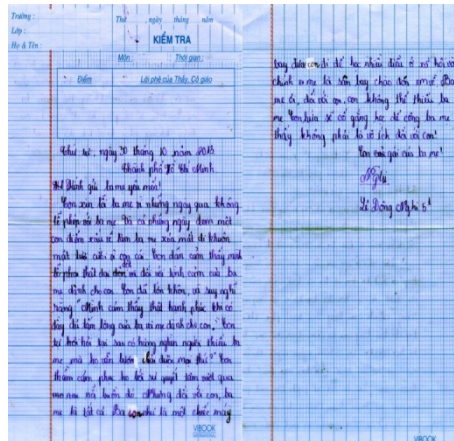 Trường :
Lớp :
Họ & Tên :
Thứ ngày tháng năm
KIỂM TRA
Môn : Thời gian :
Điểm
Lời phê của Thầy, Cô giáo
Thứ tư, ngày 30 tháng 10 năm 2013
Thành phố Hồ Chí Minh
Kính gửi ba mẹ yêu mến!
Con xin lỗi ba mẹ vì những ngày qua không
lễ phép với ba mẹ. Và cả những ngày đem một
con điểm xấu về làm ba mẹ xóa mất đi khuôn
mặt tươi cười vì con cái. Con dần cảm thấy mình
thật dại đối với tình cảm của ba
mẹ dành cho con. Con đã lớn khôn, và suy nghĩ
rằng "Mình cảm thấy thật hạnh phúc khi có
đầy đủ tấm lòng của ba và mẹ dành cho con". Con
tự hỏi tại sao có hàng ngàn người thiếu ba
mẹ mà họ vẫn luôn mọi thứ? Con
thầm cảm phục họ bởi sự quyết tâm vượt qua
nỗi buồn đó. Nhưng đối với con, ba
mẹ là tất cả. Ba như là một chiếc máy
bay đưa con đi để học nhiều điều ở xã hội, và
chính mẹ là sân bay chào đón Ba
mẹ ơi, đối với con, con không thể thiếu ba
mẹ. Con hứa sẽ cố gắng học để công ba mẹ
thấy không phải là vô ích đối với con!
Con gái của ba mẹ!
Nghi
Lê Đông Nghi 5¹
VIBOOK
VIBOOK